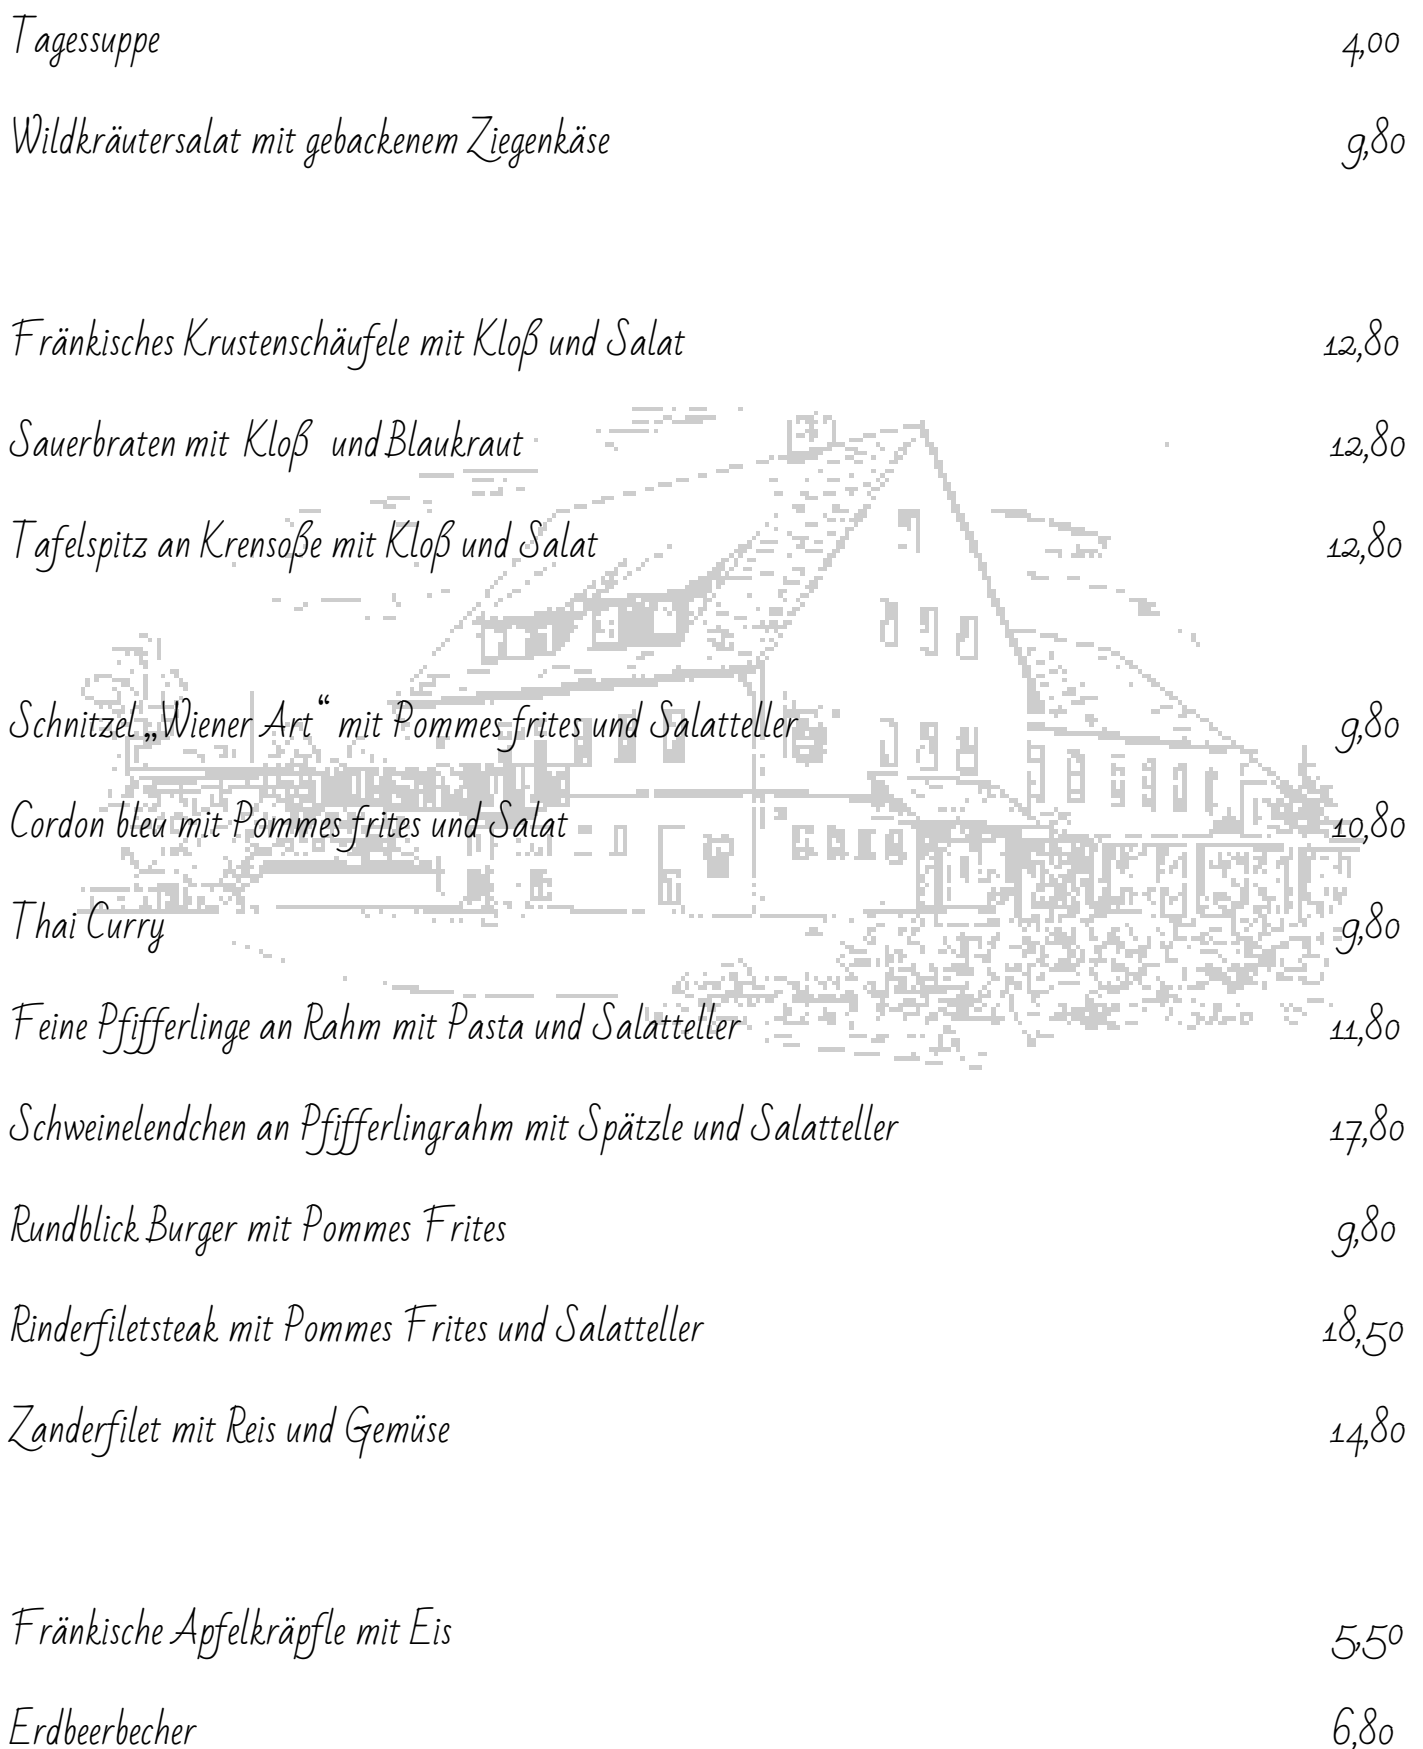 Tagessuppe 4,00
Wildkräutersalat mit gebackenem Ziegenkäse 9,80
Fränkisches Krustenschäufele mit Kloß und Salat 12,80
Sauerbraten mit Kloß und Blaukraut 12,80
Tafelspitz an Krensoße mit Kloß und Salat 12,80
Schnitzel „Wiener Art“ mit Pommes frites und Salatteller 9,80
Cordon bleu mit Pommes frites und Salat 10,80
Thai Curry 9,80
Feine Pfifferlinge an Rahm mit Pasta und Salatteller 11,80
Schweinelendchen an Pfifferlingrahm mit Spätzle und Salatteller 17,80
Rundblick Burger mit Pommes Frites 9,80
Rinderfiletsteak mit Pommes Frites und Salatteller 18,50
Zanderfilet mit Reis und Gemüse 14,80
Fränkische Apfelkräpfle mit Eis 5,50
Erdbeerbecher 6,80